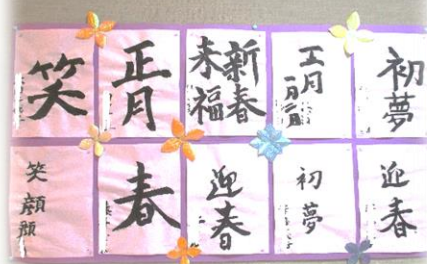 笑
正月
新春
来福
正月
一月一日
初夢
笑顔
顔
春
迎春
初夢
迎春